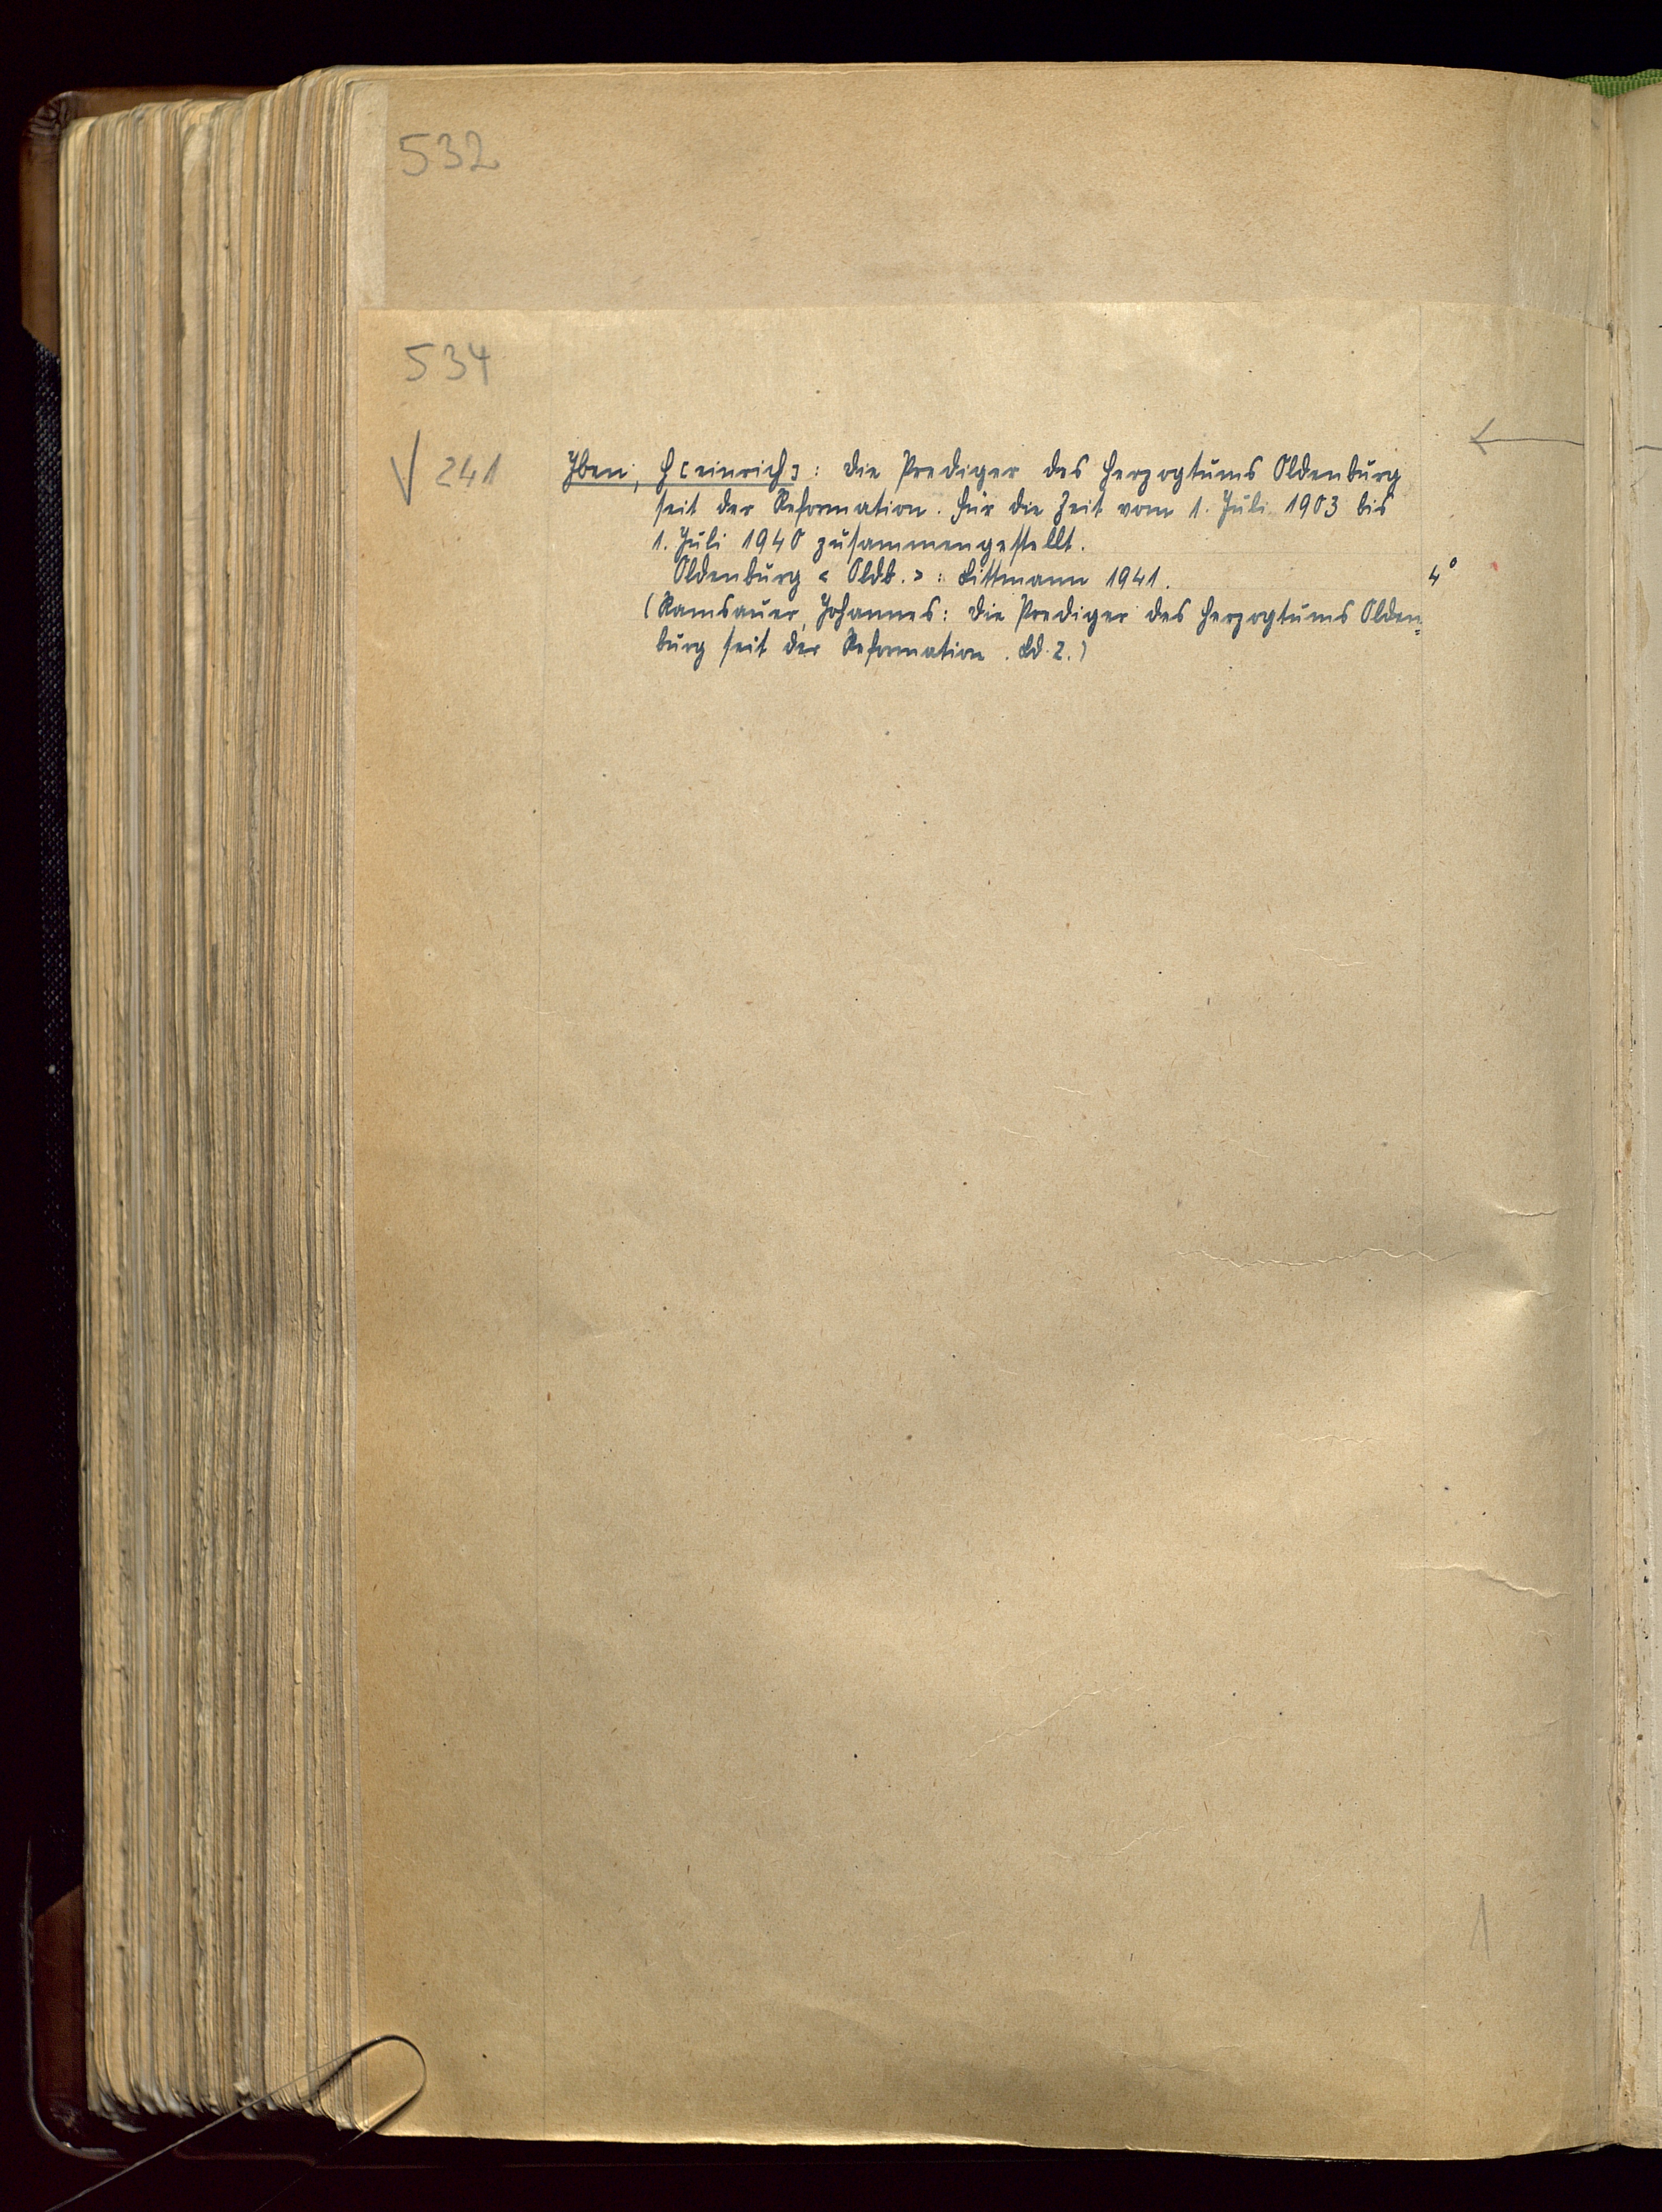 532
534
√ 241
Iben, H[einrich]: Die Prediger des Herzogtums Oldenburg
seit der Reformation. Für die Zeit vom 1. Juli 1903 bis
1. Juli 1940 zusammengestellt.
Oldenburg < Oldb. >: Littmann 1941. 4°
(Ramsauer, Johannes: Die Prediger des Herzogtums Olden=
burg seit der Reformation. Bd. 2.)
1